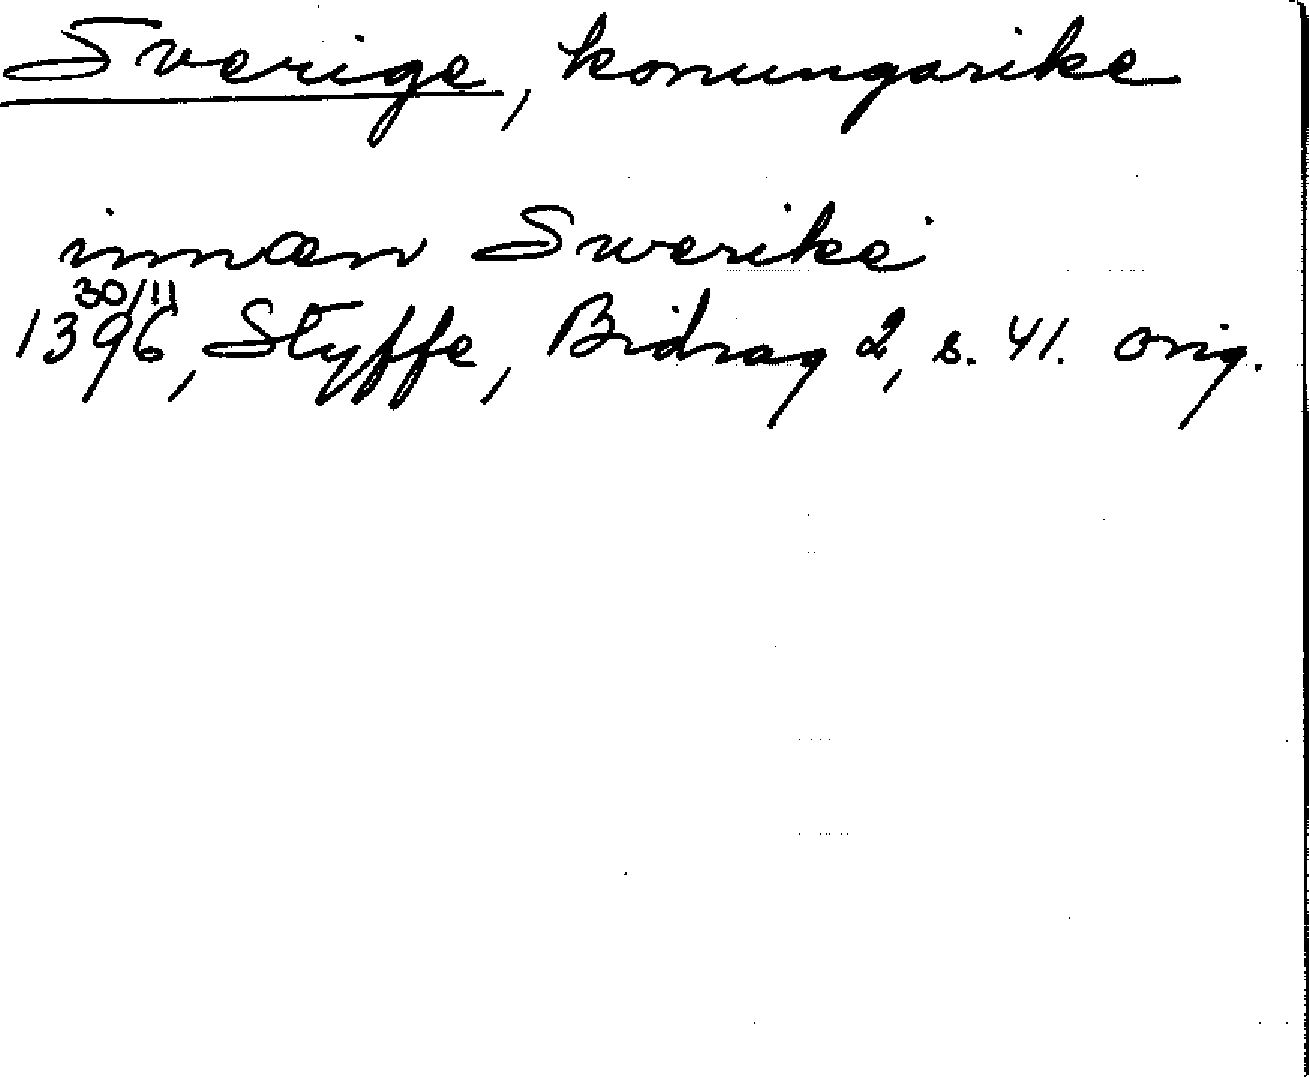 Sverige, konungarike
innæn Swerike
30/11
1396, Styffe, Bidrag 2, s. 41. orig.